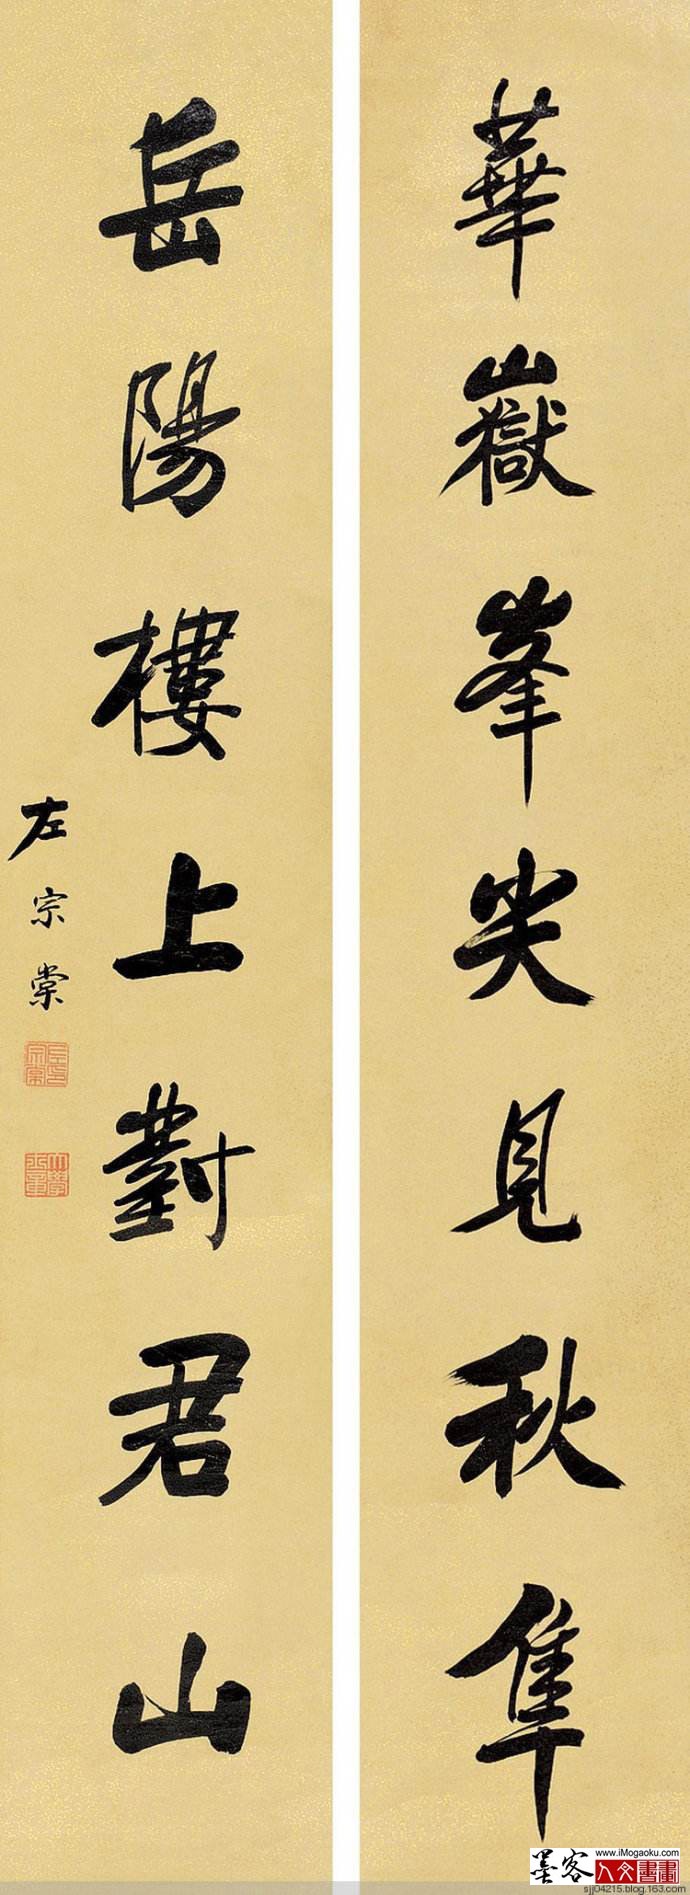 華嶽峯尖見秋隼
岳陽樓上對君山
左宗棠
墨客
www.iMogaoku.com
人文書畫
sjj04215.blog.163.com